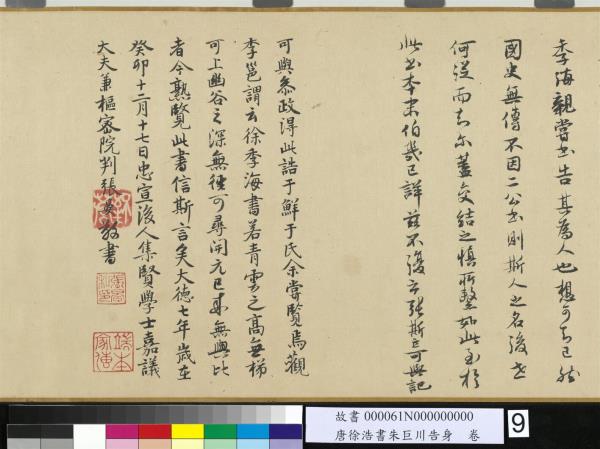 季海親嘗書告其為人也想可知已然
國史無傳不因二公書則斯人之名後世
何從而知尔蓋交結之慎所繫如此至於
此書本末伯幾已詳茲不復云張斯立可與記
可與參政得此誥于鮮于氏余嘗覽焉觀
李邕謂云徐季海書若青雲之高無梯
可上幽谷之深無徑可尋開元已來無與比
者今熟覽此書信斯言矣大德七年歲在
癸卯十二月十七日忠宣後人集賢學士嘉議
大夫兼樞密院判張晏敬書
端本家傳
故書 000061N000000000
唐徐浩書朱巨川告身 卷
9